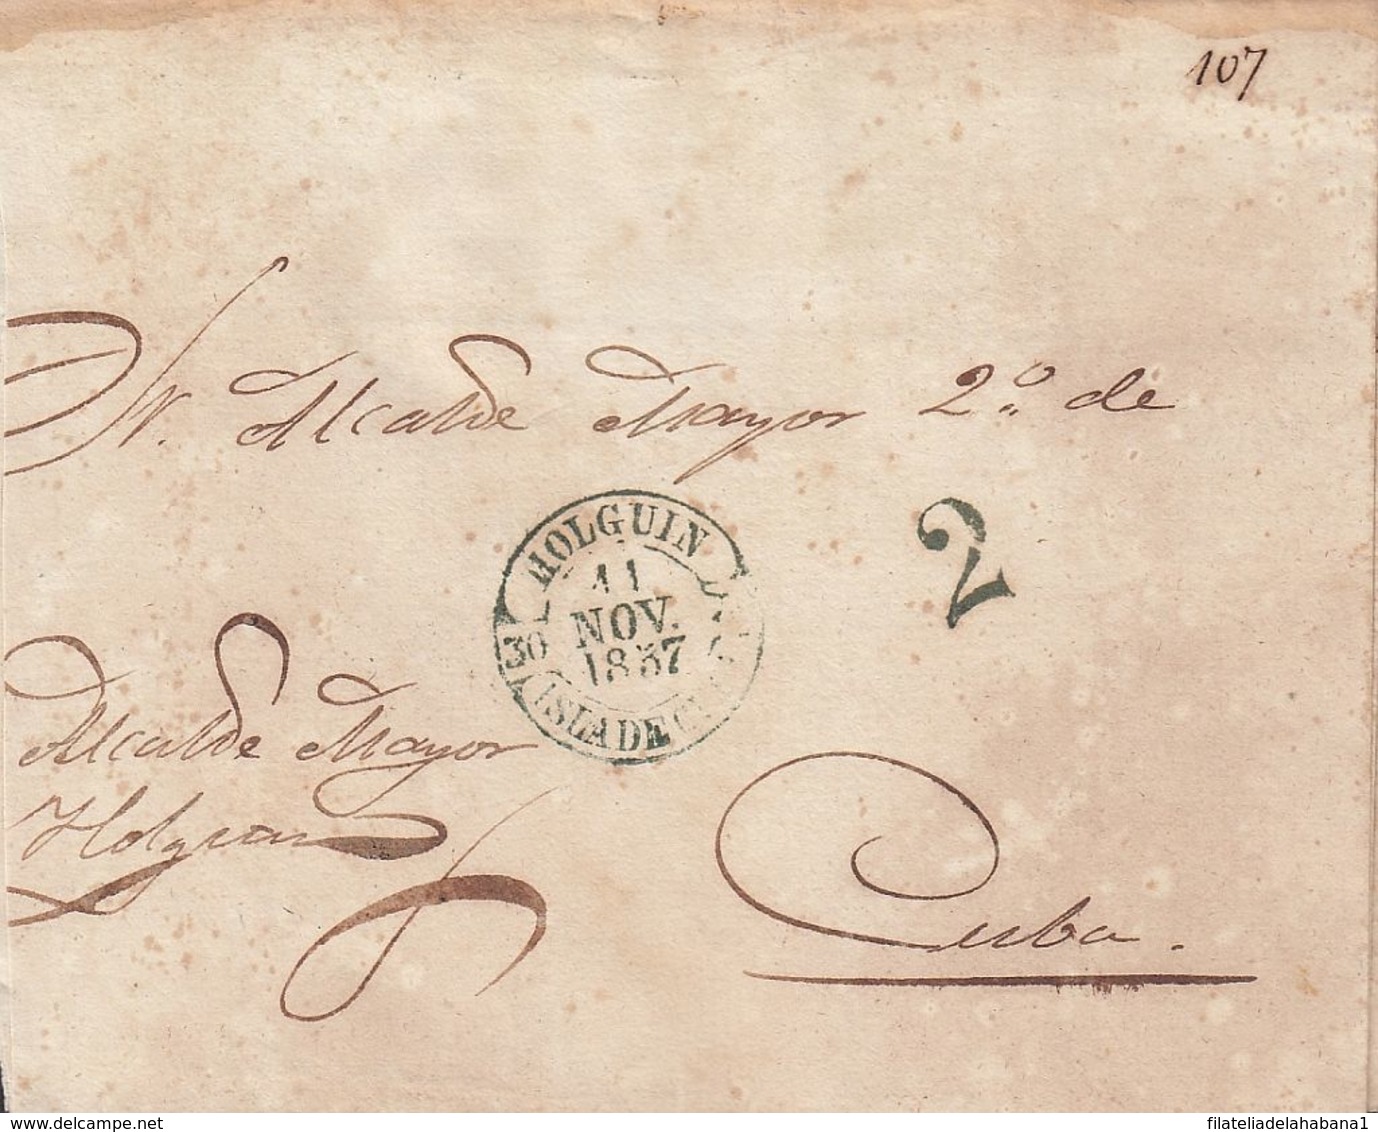 107
Sr. Alcalde Mayor 2º de
2
HOLGUIN
11
NOV.
1857
30
ISLA DE CUBA
Alcalde Mayor
Holguin
Cuba.
www.delcampe.net
filateliadelahabana1